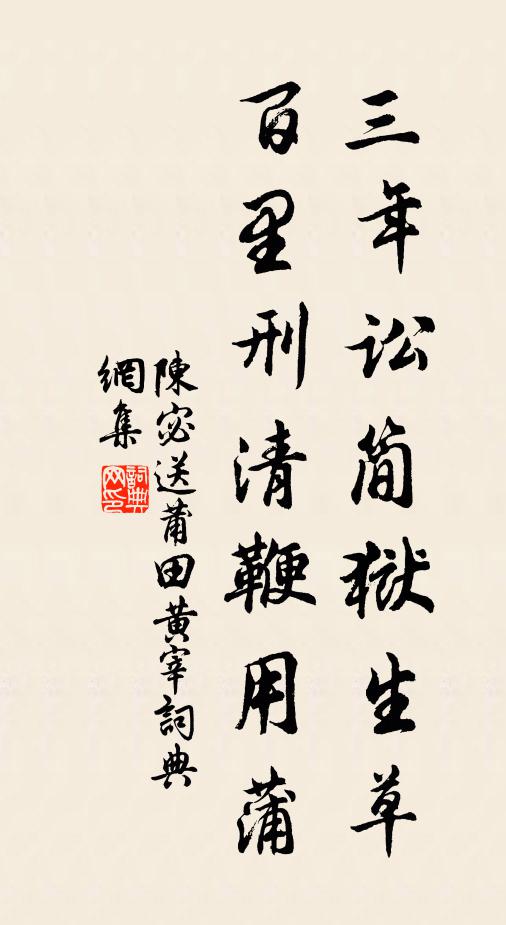 三年訟簡獄生草
百里刑清鞭用蒲
陳宓送莆田黃宰詞典
網集
詞典網印